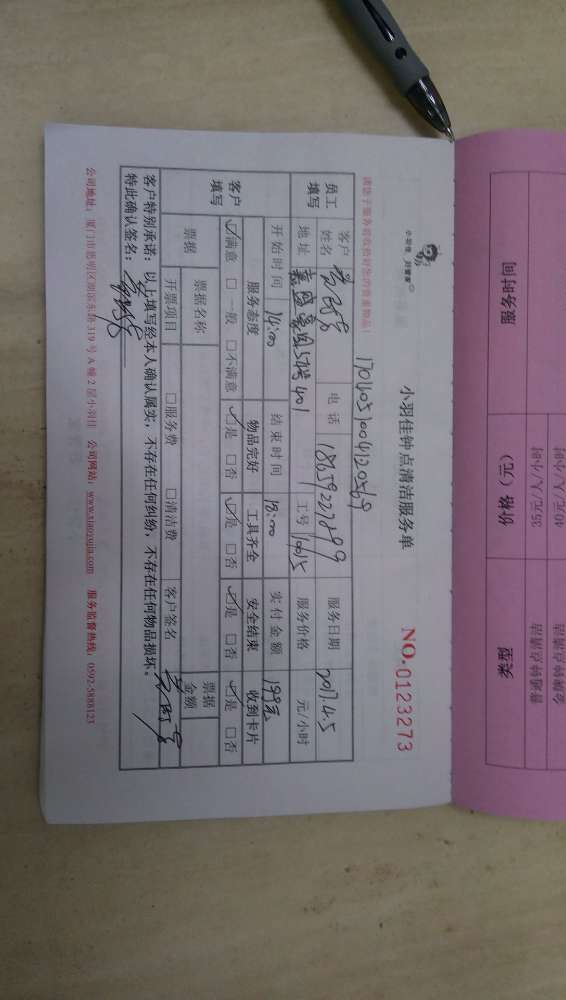 小羽佳 好管家
小羽佳钟点清洁服务单
NO.0123273
1704051004120569
请您于服务前收检好您的贵重物品!
员工填写
客户姓名
电话 18659227899
服务日期 2017.4.5
地址
401
工号 10015
服务价格 元/小时
客户填写
开始时间 14:00
结束时间 18:00
实付金额
服务态度 物品完好 工具齐全 安全结束 收到卡片
☑满意 □一般 □不满意 ☑是 □否 ☑是 □否 ☑是 □否 ☑是 □否
票据
票据名称
票据金额
开票项目 □服务费 □清洁费 客户签名
客户特别承诺:以上填写经本人确认属实,不存在任何纠纷,不存在任何物品损坏。
特此确认签名:
公司地址:厦门市思明区湖滨东路319号A幢2层小羽佳 公司网站:www.xiaoyujia.com 服务监督热线:0592-5888123
服务时间 价格(元) 类型
35元/人/小时 普通钟点清洁
40元/人/小时 金牌钟点清洁